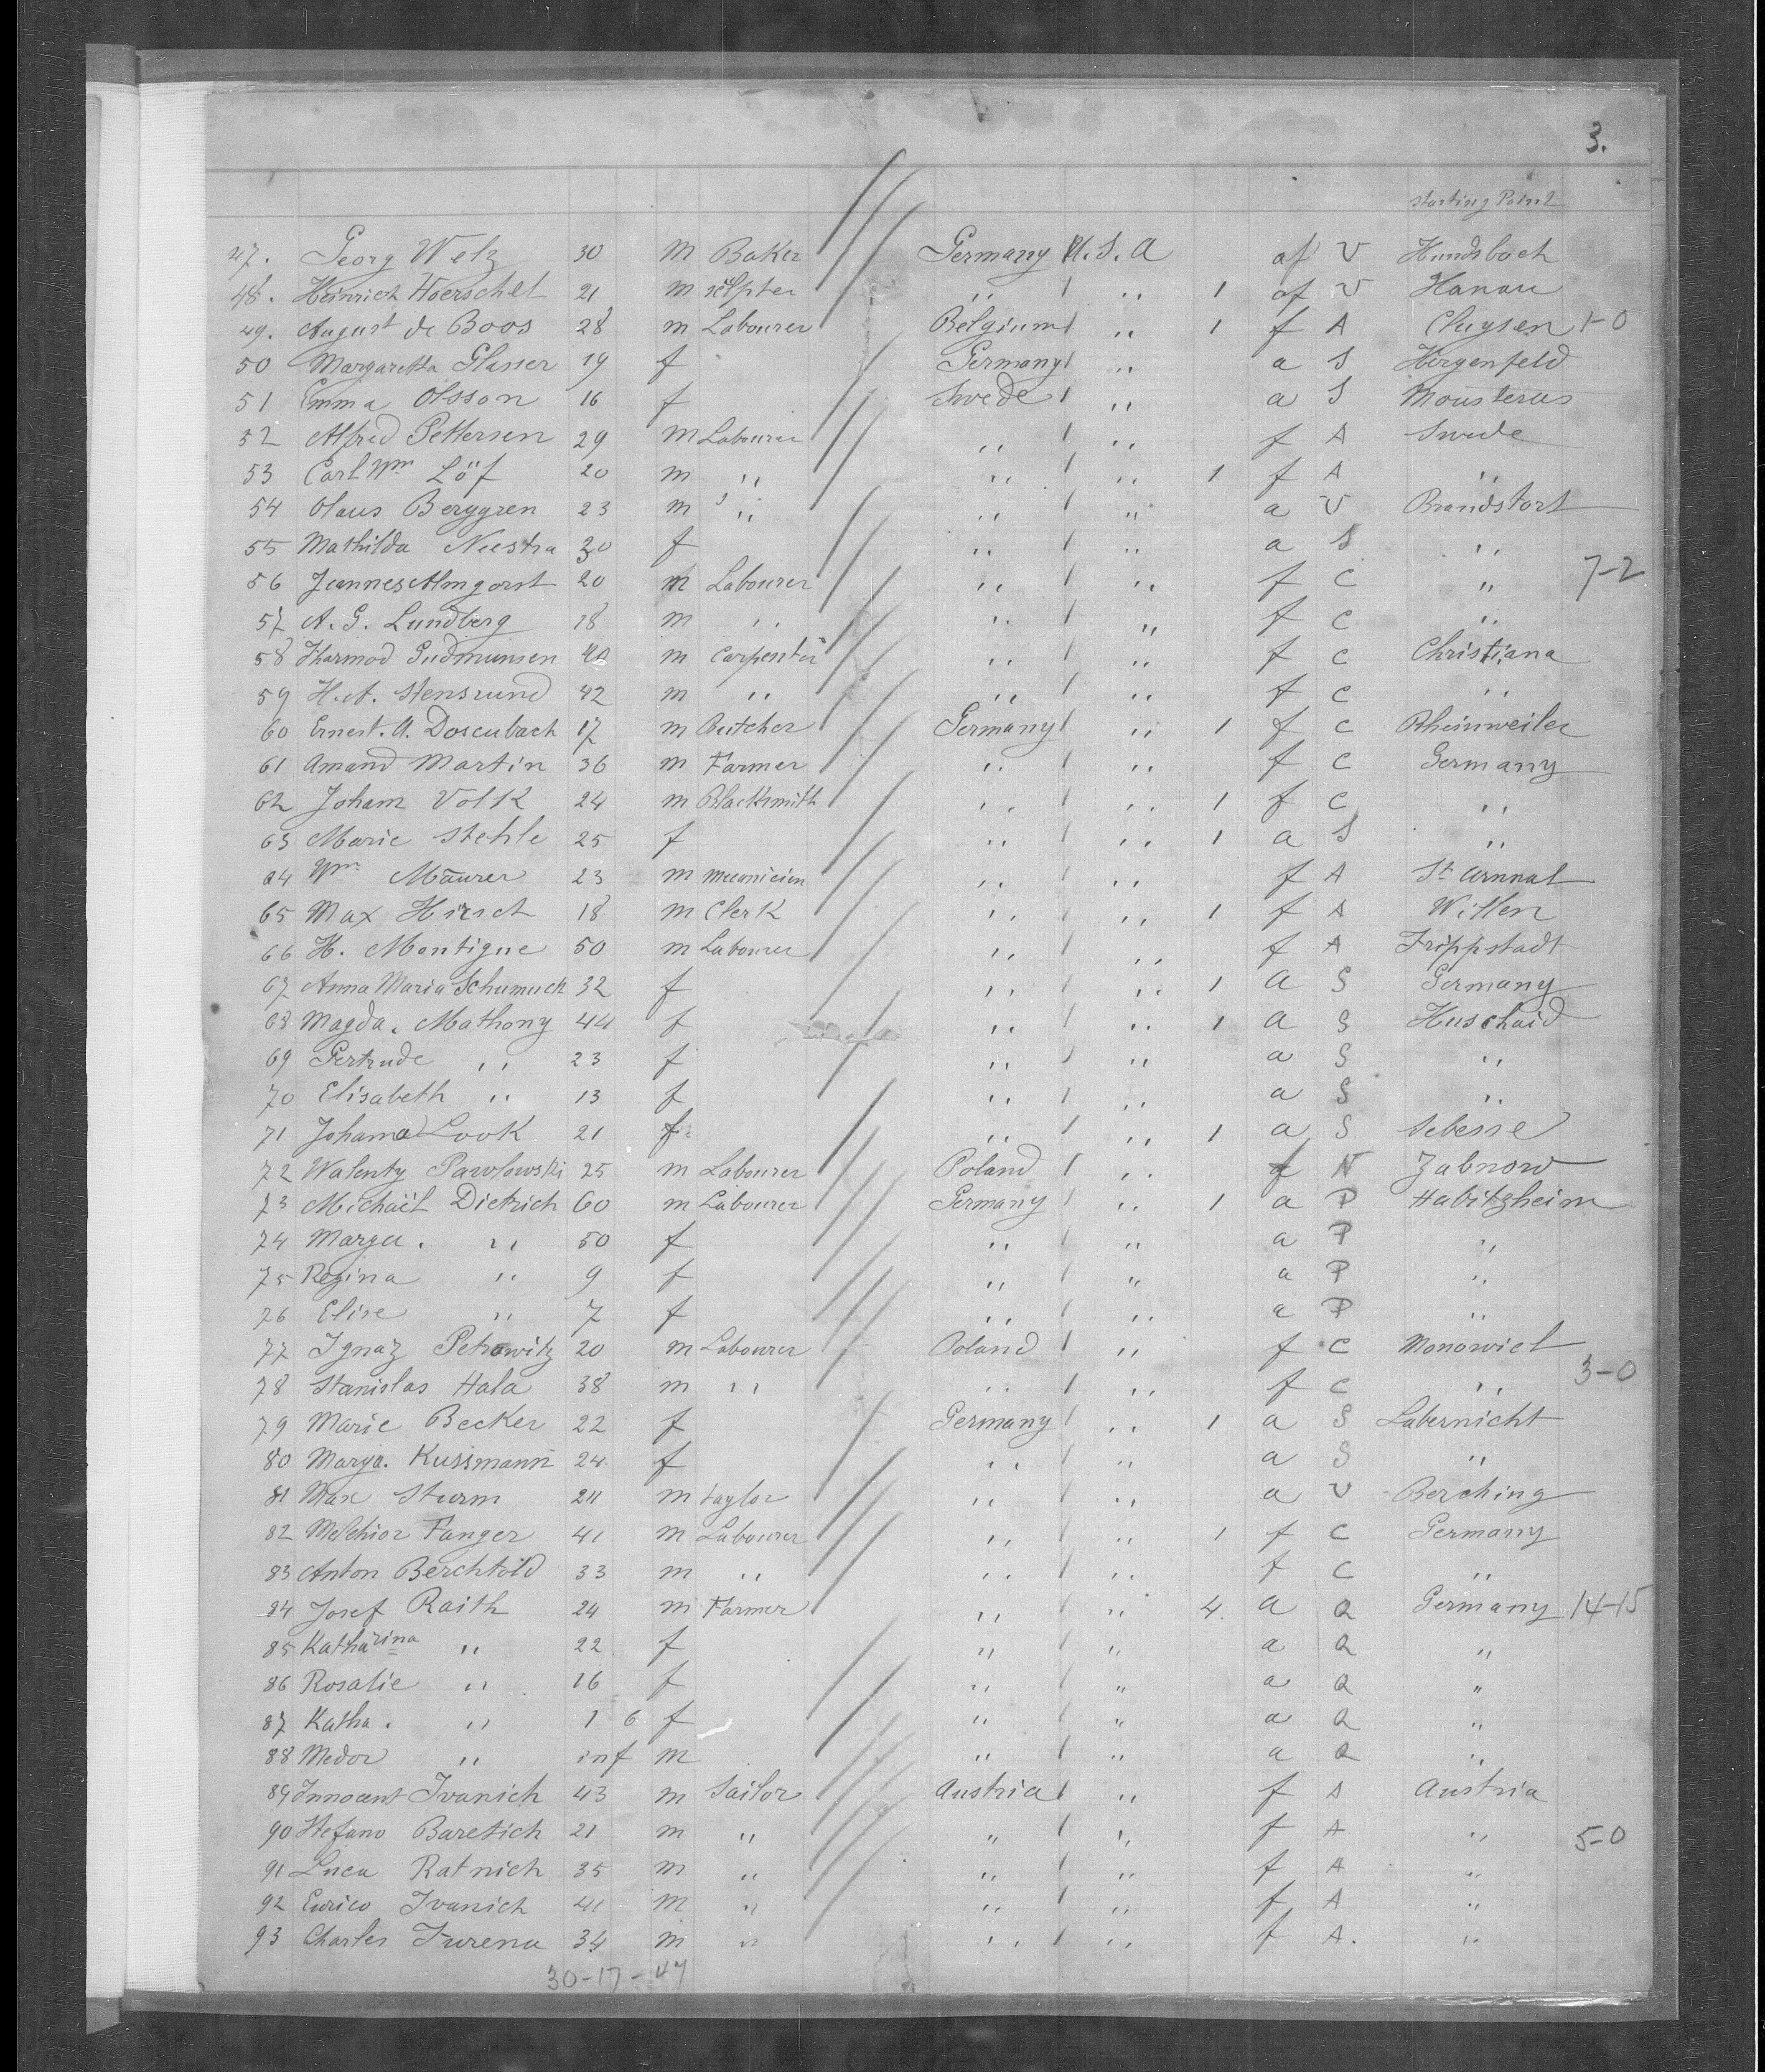 3.
starting Point
47. Georg Welz 30 m Baker Germany U.S.A af V Hundsbach
48. Heinrich Hoerschel 21 m " " 1 af V Hanau
49. August de Boos 28 m Labourer Belgium " 1 f A Cluysen 1-0
50 Margaretta Glasser 19 f Germany " a S Hergenfeld
51 Emma Olsson 16 f Swede " a S Mousteras
52 Alfred Pettersen 29 m Labourer " " f A Swede
53 Carl Wm Löf 20 m " " " 1 f A "
54 Olaus Berggren 23 m " " " a V Brandstort
55 Mathilda Neestra 30 f " " a S "
56 Jeannes Almgorst 20 m Labourer " " f C " 7-2
57 A. G. Lundberg 18 m " " " f C "
58 Thormod Gudmunsen 40 m Carpenter " " f C Christiana
59 H.A. Stensrund 42 m " " " f C "
60 Ernest. A. Dosenbach 17 m Butcher Germany " 1 f C Rheinweiler
61 Amand Martin 36 m Farmer " " f C Germany
62 Joham Volk 24 m Blacksmith " " 1 f C "
63 Marie Stehle 25 f " " 1 a S "
64 Wm Maurer 23 m mecanicien " " f A St Arnual
65 Max Hirsch 18 m Clerk " " 1 f A Witten
66 H. Montigne 50 m Labourer " " f A Trippstadt
67 Anna Maria Schumuck 32 f " " 1 a S Germany
68 Magda. Mathony 44 f " " 1 a S Huscheid
69 Gertrude " 23 f " " a S "
70 Elisabeth " 13 f " " a S "
71 Johana Look 21 f " " 1 a S Sebesse
72 Walenty Pawlowski 25 m Labourer Poland " f N Zabnow
73 Michaël Dietrich 60 m Labourer Germany " 1 a P Habitzheim
74 Marga. " 50 f " " a P "
75 Regina " 9 f " " a P "
76 Elise " 7 f " " a P "
77 Ignaz Petrowitz 20 m Labourer Poland " f C Monowiel
78 Stanislas Hala 38 m " " " f C " 3-0
79 Marie Becker 22 f Germany " 1 a S Labernicht
80 Marga. Kussmann 24 f " " a S "
81 Max Sturm 24 m taylor " " a V Berching
82 Melchior Fanger 41 m Labourer " " 1 f C Germany
83 Anton Berchtold 33 m " " " f C "
84 Josef Raith 24 m Farmer " " 4. a Q Germany 14-15
85 Katharina " 22 f " " a Q "
86 Rosalie " 16 f " " a Q "
87 Katha. " 1 6 f " " a Q "
88 Medor " inf m " " a Q "
89 Innocent Ivanich 43 m Sailor Austria " f A Austria
90 Stefano Baretich 21 m " " " f A " 5-0
91 Luca Ratnich 35 m " " " f A "
92 Enrico Ivanich 41 m " " " f A "
93 Charles Turena 34 m " " " f A. "
30-17-47